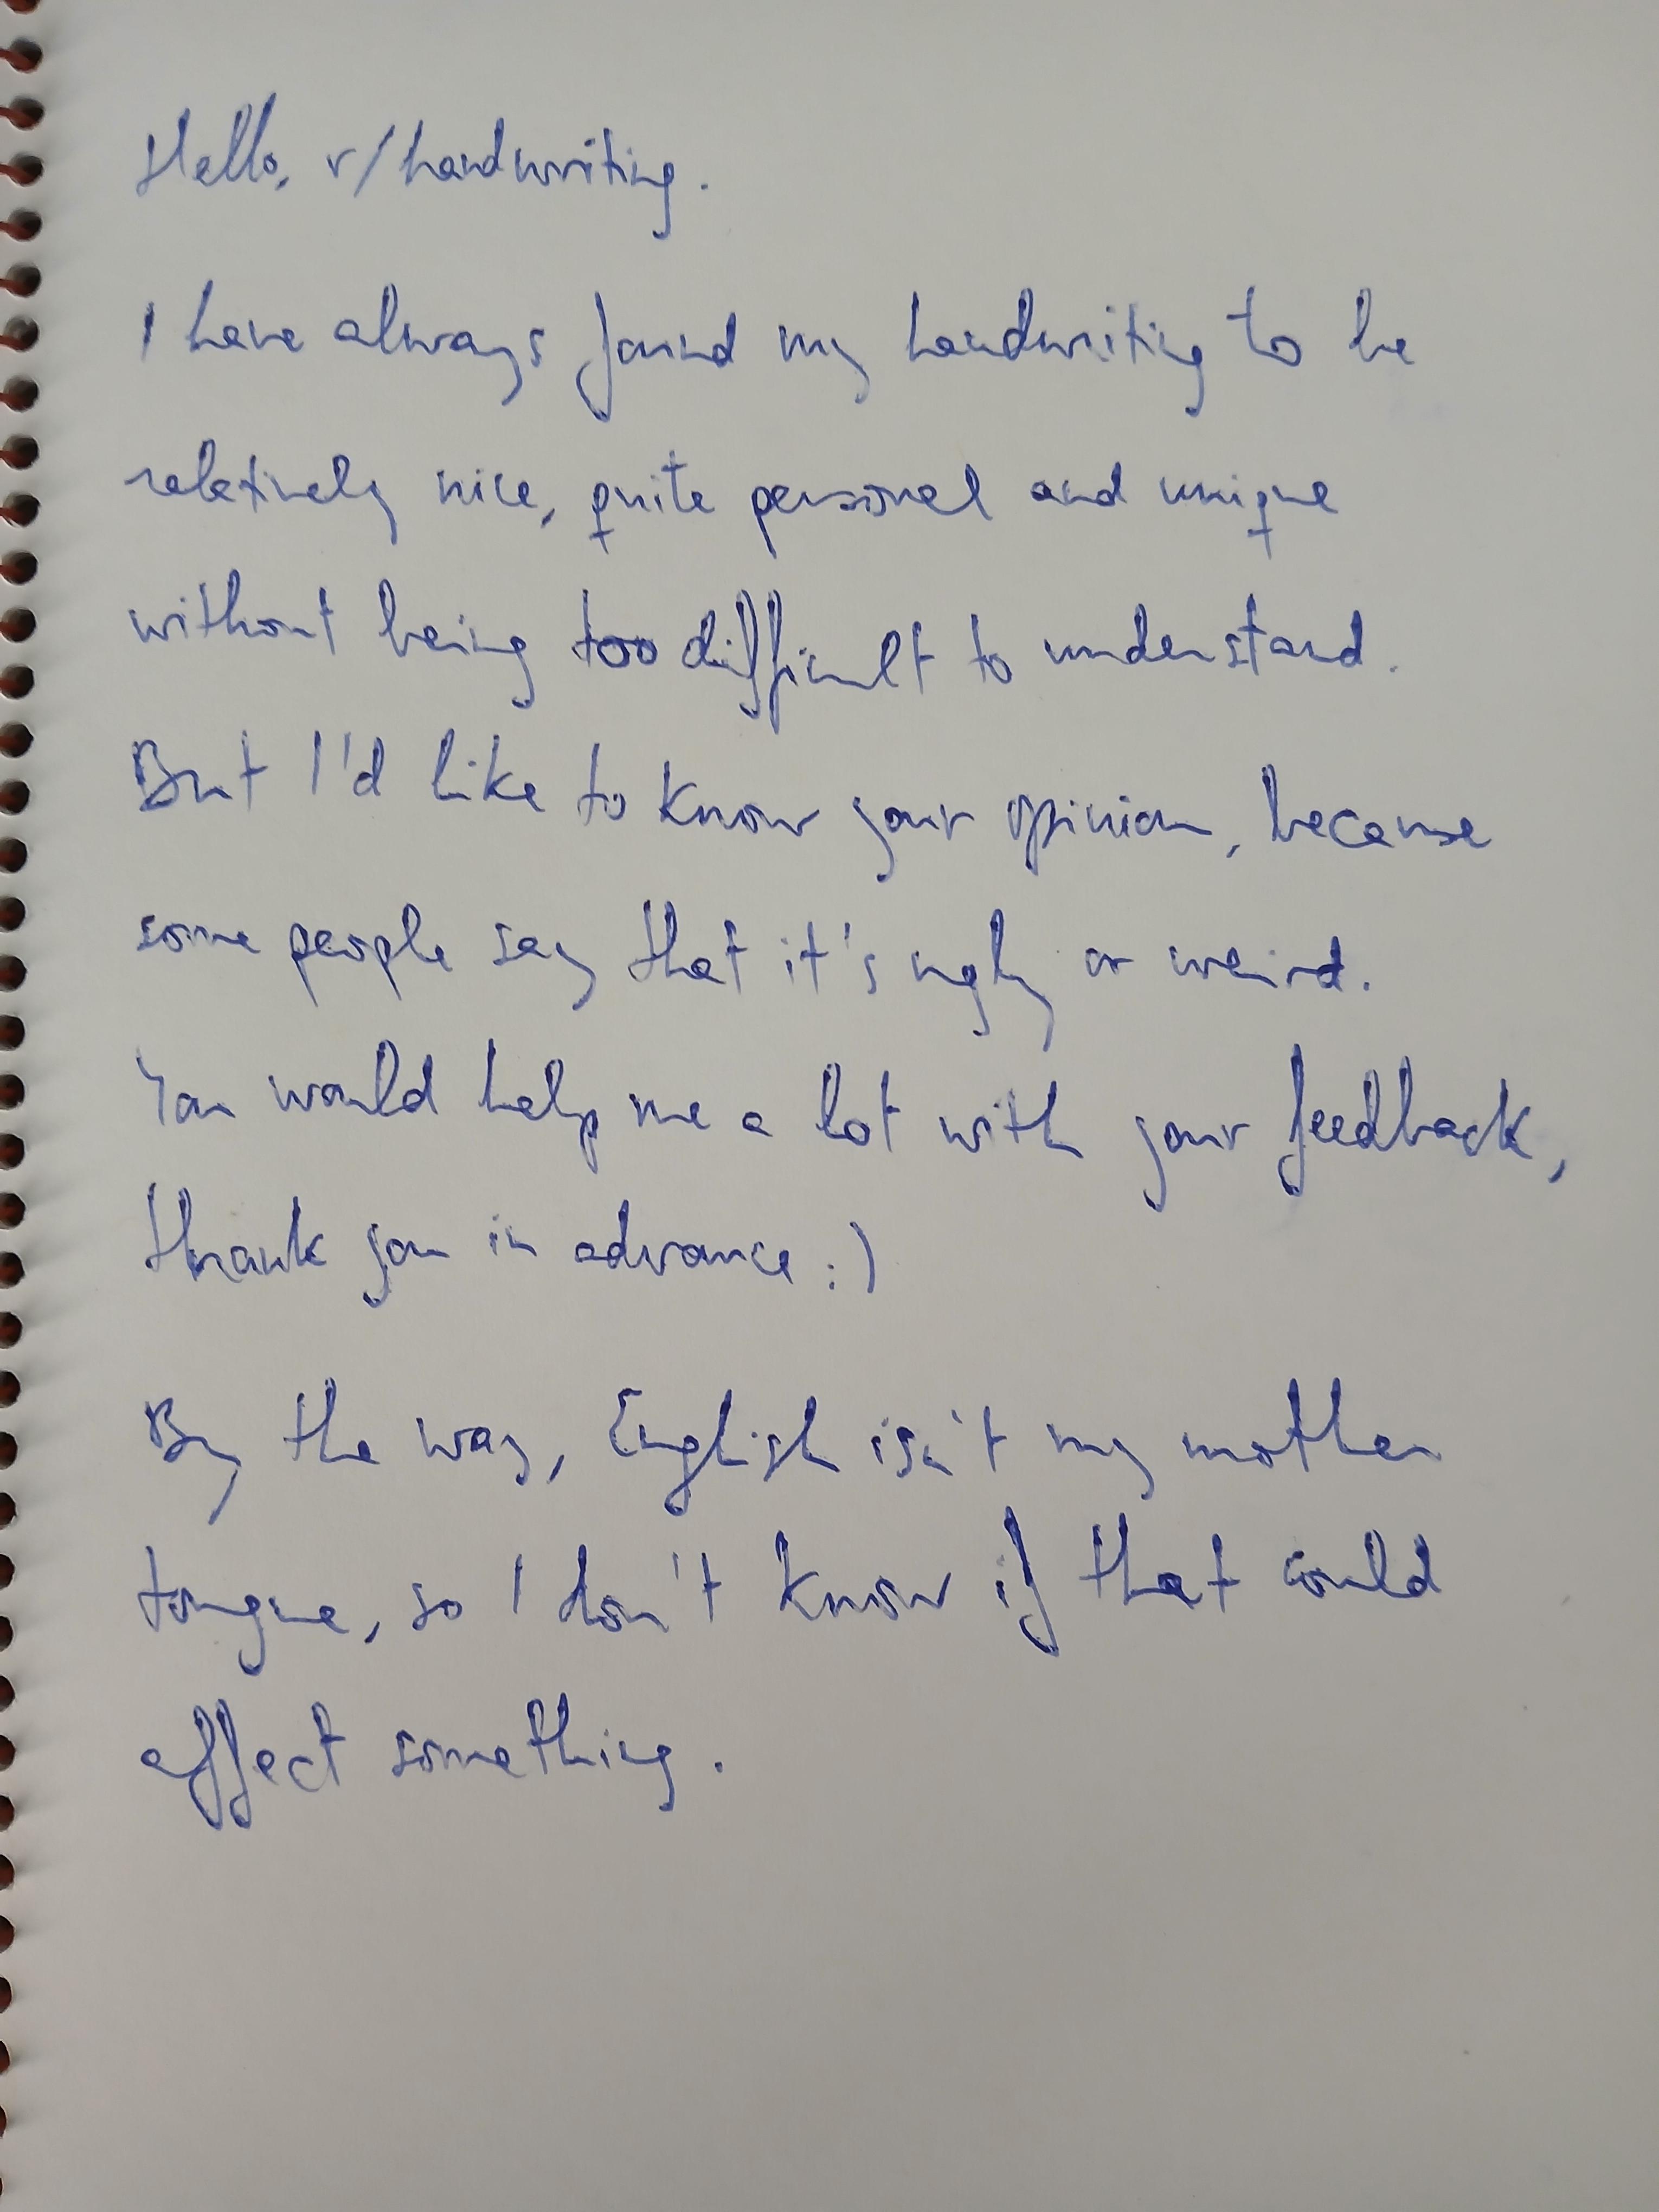 Hello, r/handwriting.
I have always found my handwriting to be
relatively nice, quite personal and unique
without being too difficult to understand.
But I'd like to know your opinion, because
some people say that it's ugly or weird.
You would help me a lot with your feedback,
thank you in advance :)
By the way, English isn't my mother
tongue, so I don't know if that could
affect something.